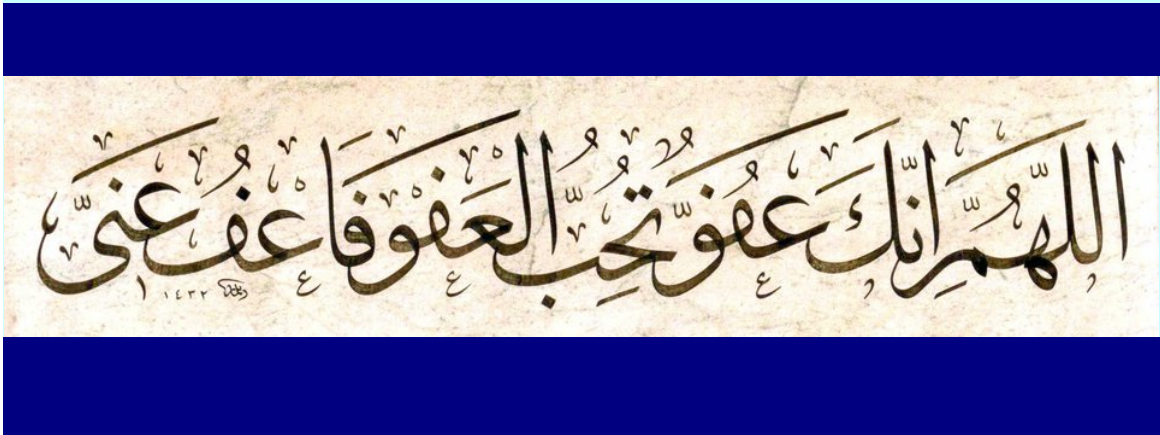 اللهم انك عفو تحب العفو فاعف عني
١٤٣٢